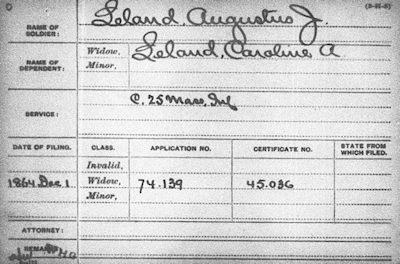 (3-H-5)
NAME OF SOLDIER: Leland, Augustus J.
NAME OF DEPENDENT: Widow, Leland, Caroline A
Minor,
SERVICE: C, 25 Mass. Inf
DATE OF FILING. CLASS. APPLICATION NO. CERTIFICATE NO. STATE FROM WHICH FILED.
Invalid,
1864 Dec 1 Widow, 74.139 45.036
Minor,
ATTORNEY:
REMARKS